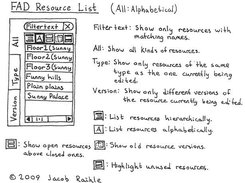 FAD Resource List (All: Alphabetical)
Filtertext X
All
Type
Version
Floor1 (Sunny
Floor2 (Sunny
Floor3 (Sunny
Funny hills
Plain plains
Sunny Palace
Filtertext: Show only resources with
matching names.
All: Show all kinds of resources.
Type: Show only resources of the same
type as the one currently being
edited.
Version: Show only different versions of
the resource currently being edited.
: List resources hierarchically.
A : List resources alphabetically.
: Show open resources
above closed ones.
: Show old resource versions.
: Highlight unused resources.
© 2009 Jacob Raihle